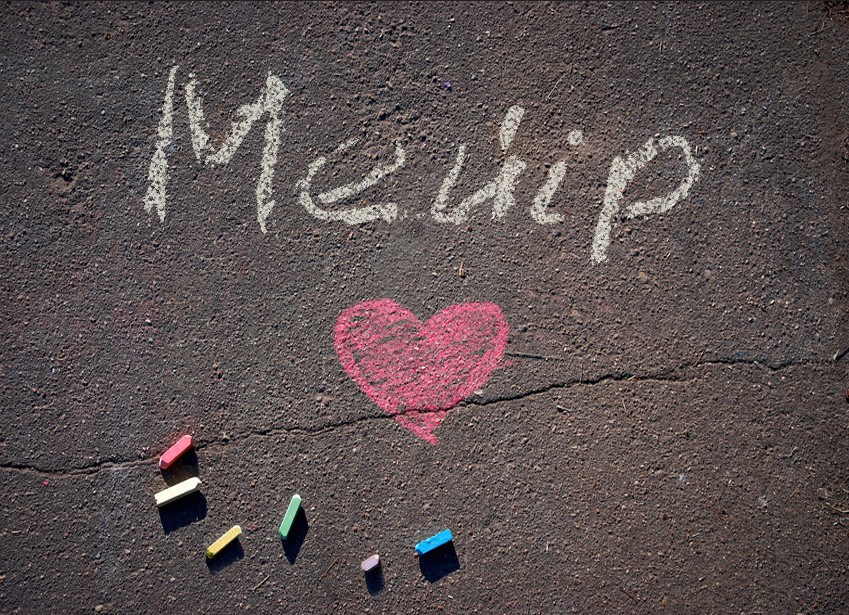 Мейір